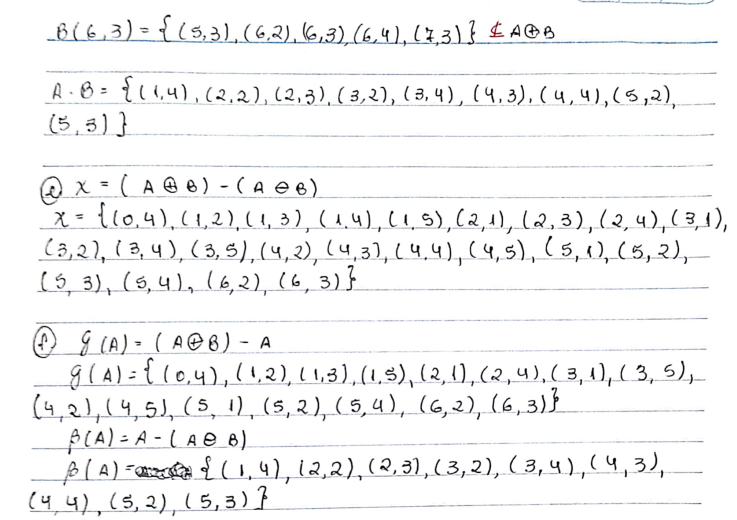 B(6,3) = {(5,3), (6,2), (6,3), (6,4), (7,3)} ⊄ A⊕B
A·B = {(1,4), (2,2), (2,3), (3,2), (3,4), (4,3), (4,4), (5,2),
(5,3)}
(e) X = (A ⊕ B) - (A ⊖ B)
X = {(0,4), (1,2), (1,3), (1,4), (1,5), (2,1), (2,3), (2,4), (3,1),
(3,2), (3,4), (3,5), (4,2), (4,3), (4,4), (4,5), (5,1), (5,2),
(5,3), (5,4), (6,2), (6,3)}
(f) g(A) = (A⊕B) - A
g(A) = {(0,4), (1,2), (1,3), (1,5), (2,1), (2,4), (3,1), (3,5),
(4,2), (4,5), (5,1), (5,2), (5,4), (6,2), (6,3)}
β(A) = A - (A⊖B)
β(A) = {(1,4), (2,2), (2,3), (3,2), (3,4), (4,3),
(4,4), (5,2), (5,3)}